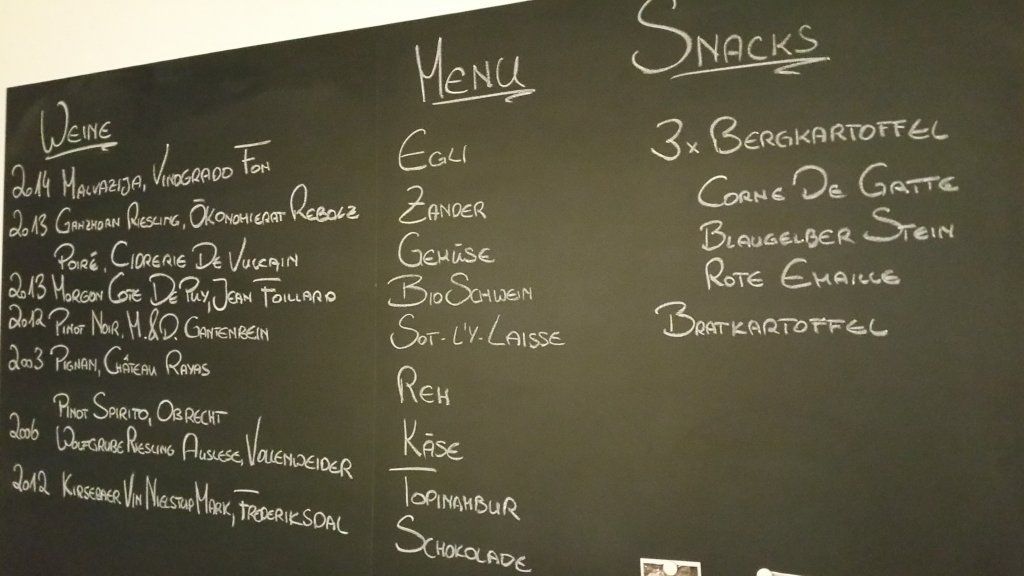 Weine
2014 Malvazija, Vinogrado Fon
2013 Ganzhorn Riesling, Ökonomierat Rebolz
Poiré, Cidrerie De Vulcain
2013 Morgon Cote De Puy, Jean Foillard
2012 Pinot Noir, M.&D. Gantenbein
2003 Pignan, Château Rayas
Pinot Spirito, Obrecht
2006 Wolfgrube Riesling Auslese, Vollenweider
2012 Kirsebaer Vin Nielstup Mark, Frederiksdal
Menu
Egli
Zander
Gemüse
BioSchwein
Sot-l'y-Laisse
Reh
Käse
Topinambur
Schokolade
Snacks
3x Bergkartoffel
Corne De Gatte
Blaugelber Stein
Rote Emaille
Bratkartoffel